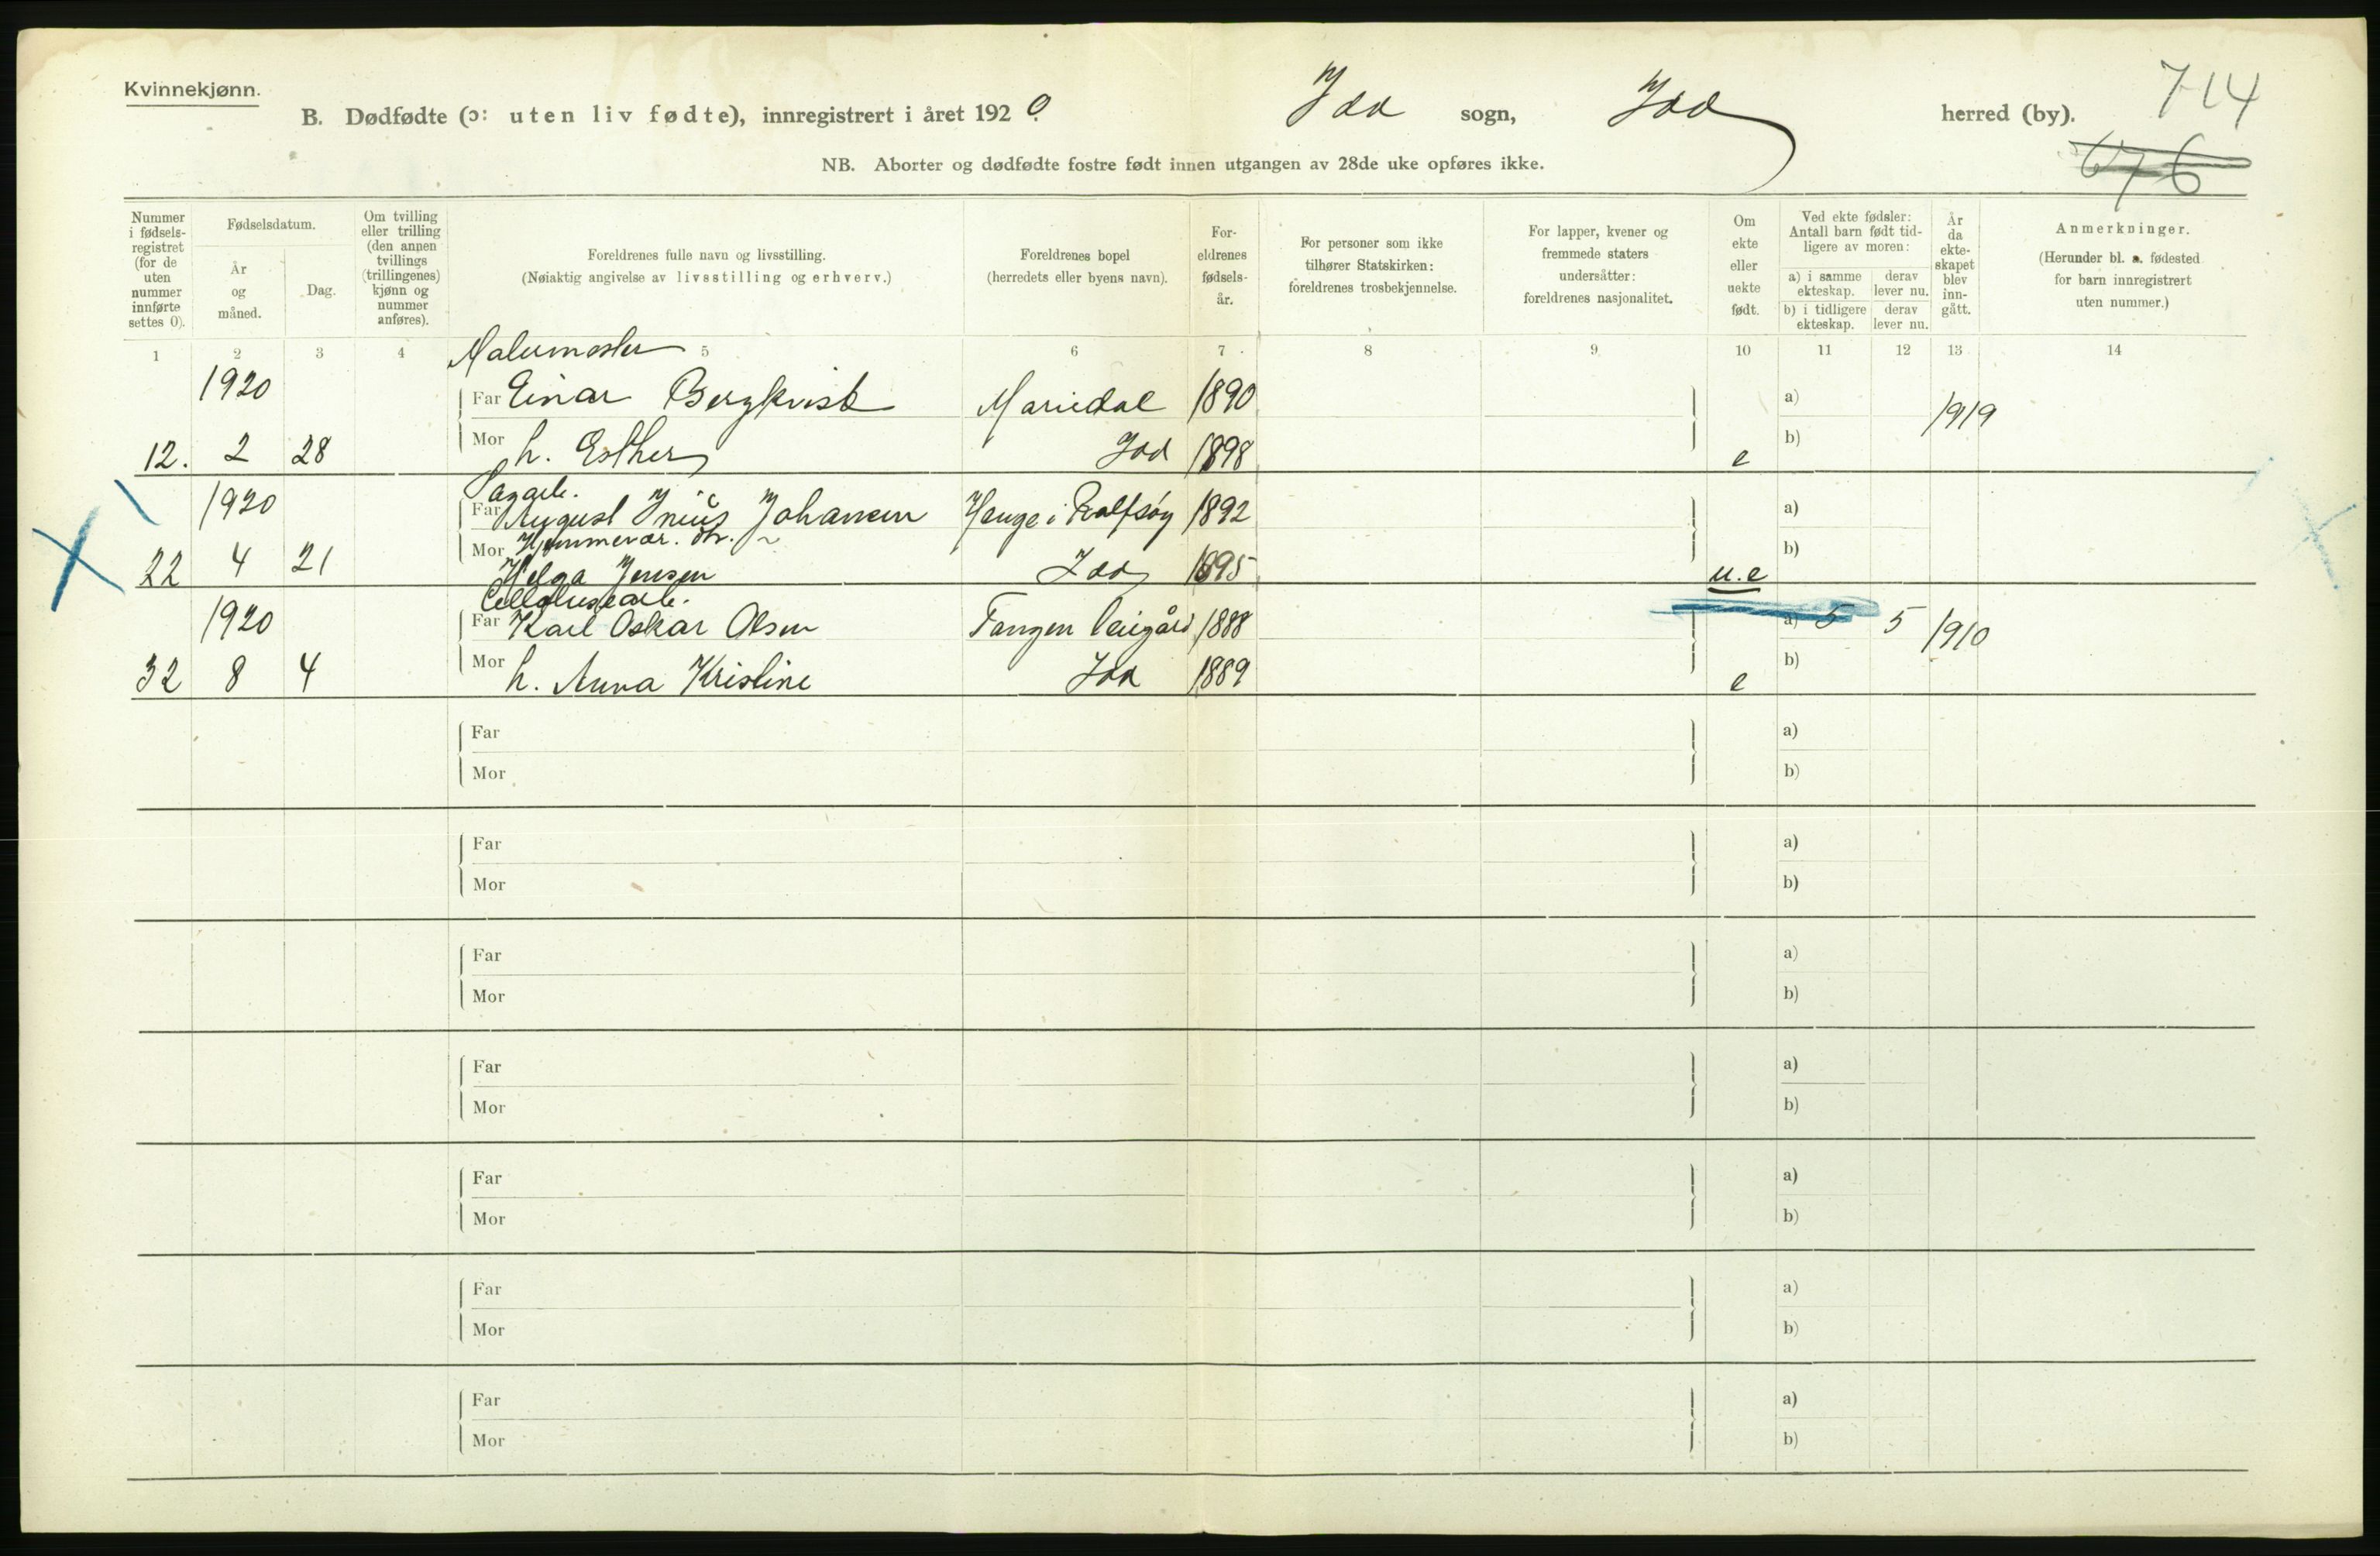 Kvinnekjønn.
714
B. Dødfødte (ɔ: uten liv fødte), innregistrert i året 1920. Idd sogn, Idd herred (by).
676
NB. Aborter og dødfødte fostre født innen utgangen av 28de uke opføres ikke.
Nummer i fødselsregistret (for de uten nummer innførte settes 0).
Fødselsdatum.
År og måned.
Dag.
Om tvilling eller trilling (den annen tvillings (trillingenes) kjønn og nummer anføres).
Foreldrenes fulle navn og livsstilling.
(Nøiaktig angivelse av livsstilling og erhverv.)
Foreldrenes bopel
(herredets eller byens navn).
Foreldrenes fødselsår.
For personer som ikke tilhører Statskirken: foreldrenes trosbekjennelse.
For lapper, kvener og fremmede staters undersåtter: foreldrenes nasjonalitet.
Om ekte eller uekte født.
Ved ekte fødsler: Antall barn født tidligere av moren:
a) i samme ekteskap. derav lever nu.
b) i tidligere ekteskap. derav lever nu.
År da ekteskapet blev inngått.
Anmerkninger.
(Herunder bl. a. fødested for barn innregistrert uten nummer.)
1 2 3 4 5 6 7 8 9 10 11 12 13 14
Malermester
1920 Far Einar Bergkvist Mariedal 1890 a) 1919
12. 2 28 Mor h. Esther Idd 1898 e b)
1920 Far August Johansen Hauge i Rolfsøy 1892 a)
22 4 21 Mor Helga Jensen Idd 1895 u.e b)
Cellulosearb.
1920 Far Karl Oskar Olsen Tangen leiegård 1888 a) 5 5 1910
32 8 4 Mor h. Anna Kristine Idd 1889 e b)
Far a)
Mor b)
Far a)
Mor b)
Far a)
Mor b)
Far a)
Mor b)
Far a)
Mor b)
Far a)
Mor b)
Far a)
Mor b)